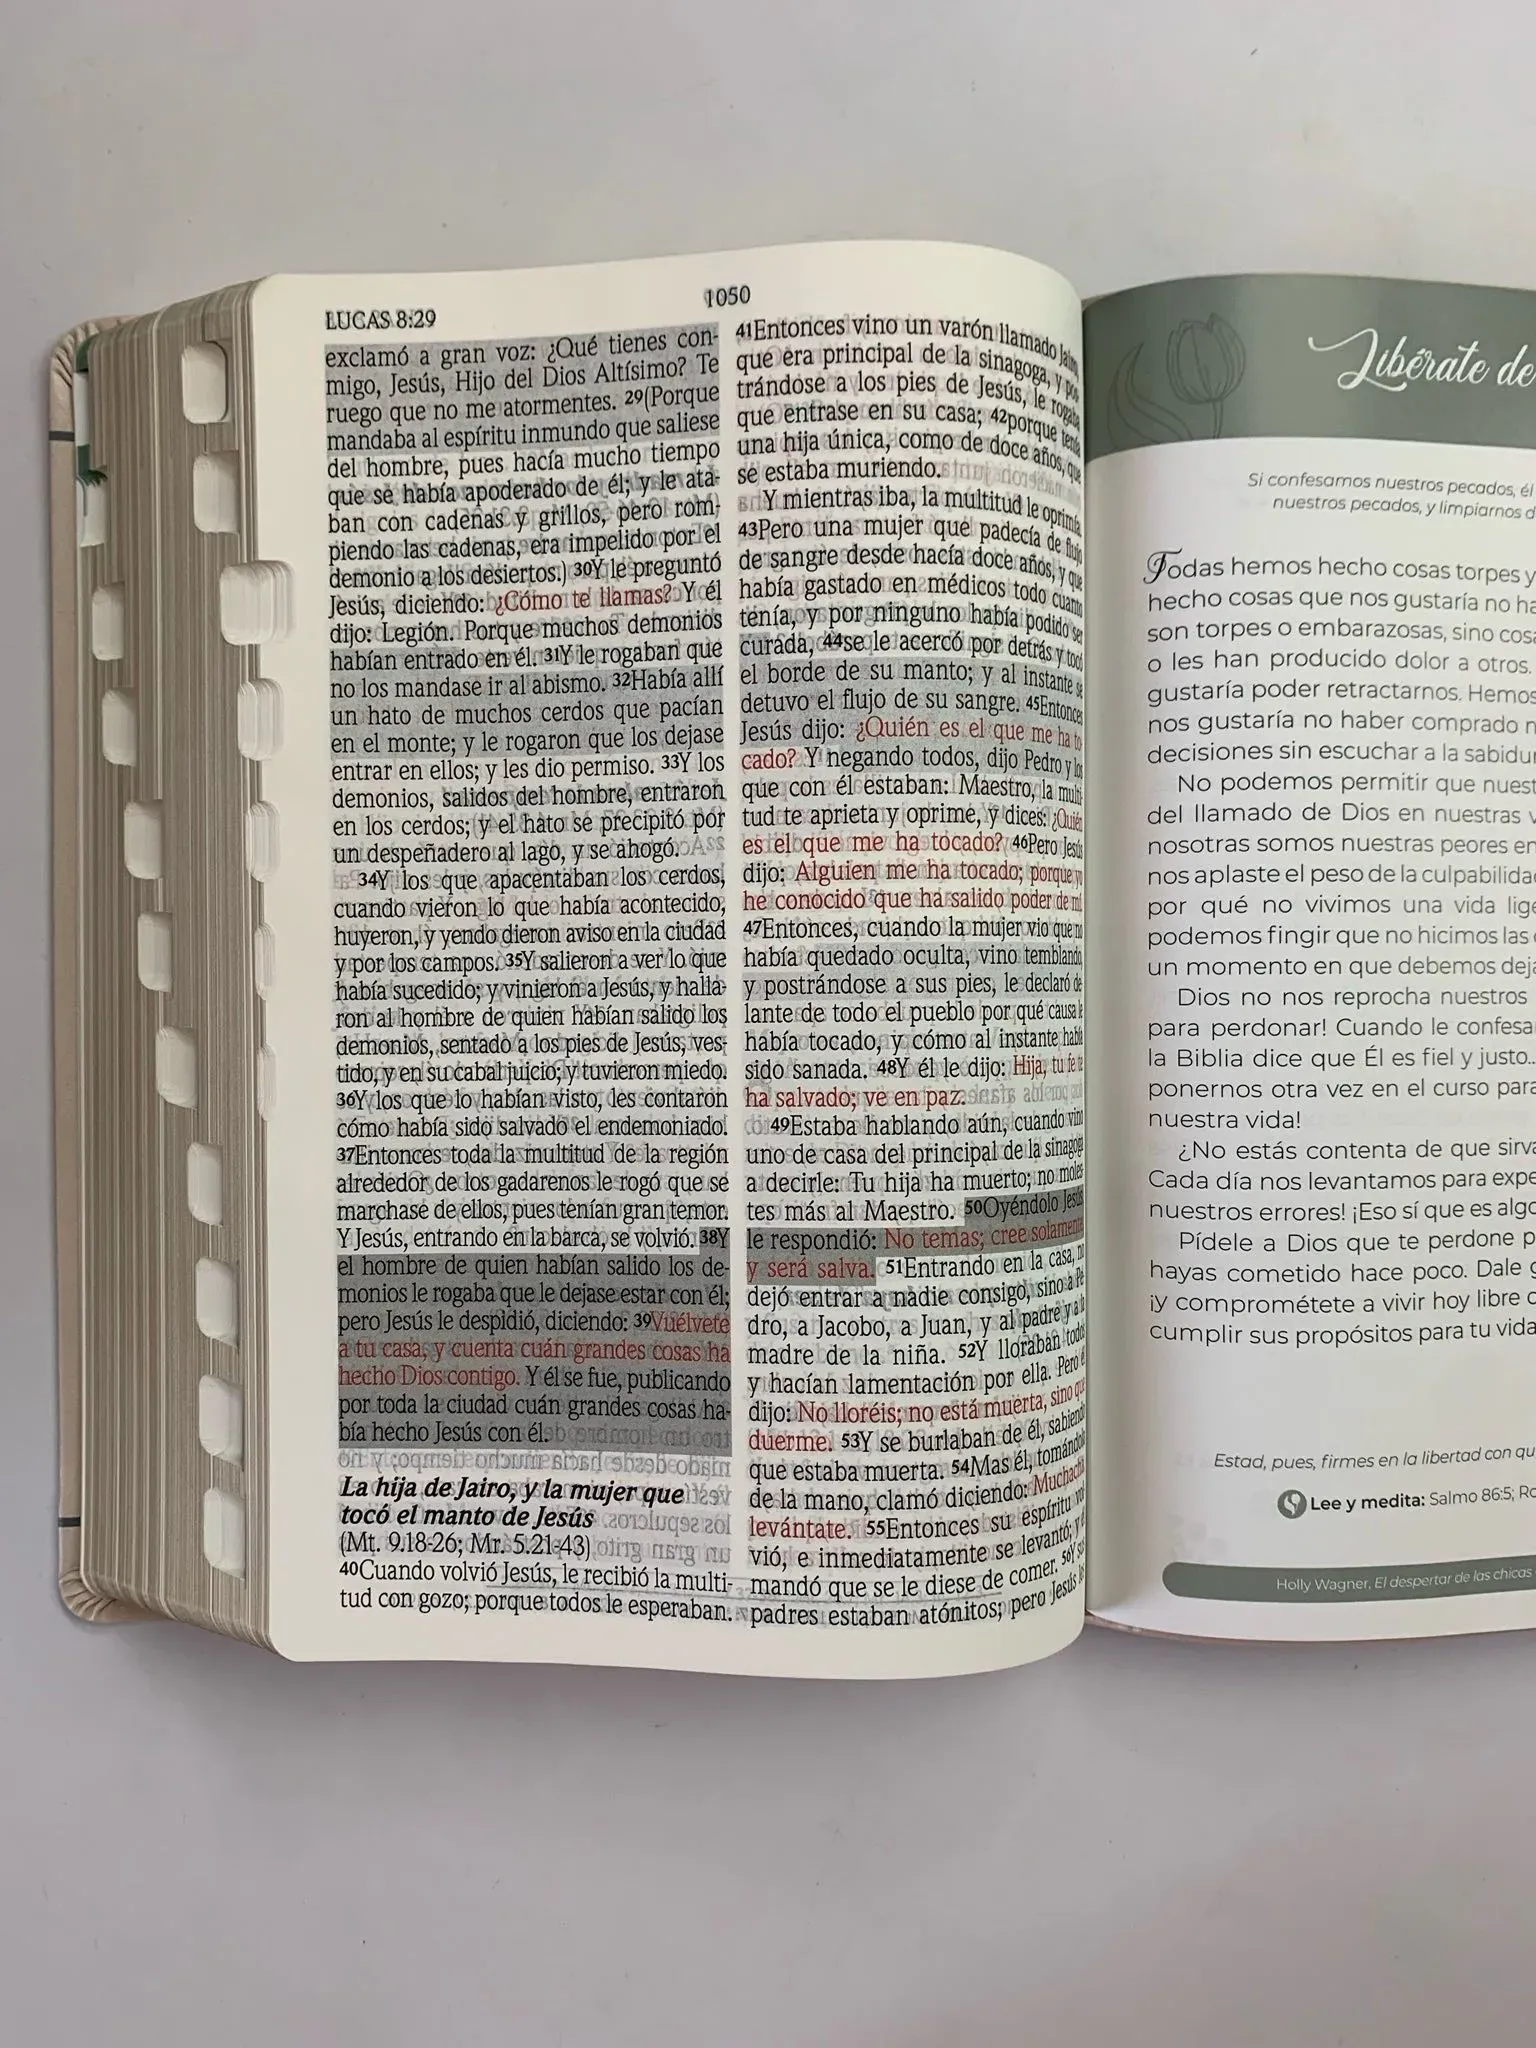 LUCAS 8:29
1050
exclamó a gran voz: ¿Qué tienes con-
migo, Jesús, Hijo del Dios Altísimo? Te
ruego que no me atormentes. 29(Porque
mandaba al espíritu inmundo que saliese
del hombre, pues hacía mucho tiempo
que se había apoderado de él; y le ata-
ban con cadenas y grillos, pero rom-
piendo las cadenas, era impelido por el
demonio a los desiertos.) 30Y le preguntó
Jesús, diciendo: ¿Cómo te llamas? Y él
dijo: Legión. Porque muchos demonios
habían entrado en él. 31Y le rogaban que
no los mandase ir al abismo. 32Había allí
un hato de muchos cerdos que pacían
en el monte; y le rogaron que los dejase
entrar en ellos; y les dio permiso. 33Y los
demonios, salidos del hombre, entraron
en los cerdos; y el hato se precipitó por
un despeñadero al lago, y se ahogó.
34Y los que apacentaban los cerdos,
cuando vieron lo que había acontecido,
huyeron, y yendo dieron aviso en la ciudad
y por los campos. 35Y salieron a ver lo que
había sucedido; y vinieron a Jesús, y halla-
ron al hombre de quien habían salido los
demonios, sentado a los pies de Jesús, ves-
tido, y en su cabal juicio; y tuvieron miedo.
36Y los que lo habían visto, les contaron
cómo había sido salvado el endemoniado.
37Entonces toda la multitud de la región
alrededor de los gadarenos le rogó que se
marchase de ellos, pues tenían gran temor.
Y Jesús, entrando en la barca, se volvió. 38Y
el hombre de quien habían salido los de-
monios le rogaba que le dejase estar con él;
pero Jesús le despidió, diciendo: 39Vuélvete
a tu casa, y cuenta cuán grandes cosas ha
hecho Dios contigo. Y él se fue, publicando
por toda la ciudad cuán grandes cosas ha-
bía hecho Jesús con él.
La hija de Jairo, y la mujer que
tocó el manto de Jesús
(Mt. 9.18-26; Mr. 5.21-43)
40Cuando volvió Jesús, le recibió la multi-
tud con gozo; porque todos le esperaban.
41Entonces vino un varón llamado Jairo,
que era principal de la sinagoga, y pos-
trándose a los pies de Jesús, le rogaba
que entrase en su casa; 42porque tenía
una hija única, como de doce años, que
se estaba muriendo.
Y mientras iba, la multitud le oprimía.
43Pero una mujer que padecía de flujo
de sangre desde hacía doce años, y que
había gastado en médicos todo cuanto
tenía, y por ninguno había podido ser
curada, 44se le acercó por detrás y tocó
el borde de su manto; y al instante se
detuvo el flujo de su sangre. 45Entonces
Jesús dijo: ¿Quién es el que me ha to-
cado? Y negando todos, dijo Pedro y los
que con él estaban: Maestro, la multi-
tud te aprieta y oprime, y dices: ¿Quién
es el que me ha tocado? 46Pero Jesús
dijo: Alguien me ha tocado; porque yo
he conocido que ha salido poder de mí.
47Entonces, cuando la mujer vio que no
había quedado oculta, vino temblando,
y postrándose a sus pies, le declaró de-
lante de todo el pueblo por qué causa le
había tocado, y cómo al instante había
sido sanada. 48Y él le dijo: Hija, tu fe te
ha salvado; ve en paz.
49Estaba hablando aún, cuando vino
uno de casa del principal de la sinagoga
a decirle: Tu hija ha muerto; no moles-
tes más al Maestro. 50Oyéndolo Jesús,
le respondió: No temas; cree solamente,
y será salva. 51Entrando en la casa, no
dejó entrar a nadie consigo, sino a Pe-
dro, a Jacobo, a Juan, y al padre y a la
madre de la niña. 52Y lloraban todos
y hacían lamentación por ella. Pero él
dijo: No lloréis; no está muerta, sino que
duerme. 53Y se burlaban de él, sabiendo
que estaba muerta. 54Mas él, tomándola
de la mano, clamó diciendo: Muchacha,
levántate. 55Entonces su espíritu vol-
vió, e inmediatamente se levantó; y él
mandó que se le diese de comer. 56Y sus
padres estaban atónitos; pero Jesús les
Libérate de
Si confesamos nuestros pecados, él
nuestros pecados, y limpiarnos d
Todas hemos hecho cosas torpes y
hecho cosas que nos gustaría no ha
son torpes o embarazosas, sino cosa
o les han producido dolor a otros.
gustaría poder retractarnos. Hemos
nos gustaría no haber comprado n
decisiones sin escuchar a la sabidur
No podemos permitir que nuest
del llamado de Dios en nuestras v
nosotras somos nuestras peores en
nos aplaste el peso de la culpabilida
por qué no vivimos una vida lige
podemos fingir que no hicimos las
un momento en que debemos deja
Dios no nos reprocha nuestros
para perdonar! Cuando le confesa
la Biblia dice que Él es fiel y justo...
ponernos otra vez en el curso para
nuestra vida!
¿No estás contenta de que sirva
Cada día nos levantamos para expe
nuestros errores! ¡Eso sí que es algo
Pídele a Dios que te perdone p
hayas cometido hace poco. Dale g
¡y comprométete a vivir hoy libre c
cumplir sus propósitos para tu vida
Estad, pues, firmes en la libertad con qu
Lee y medita: Salmo 86:5; Ro
Holly Wagner, El despertar de las chicas